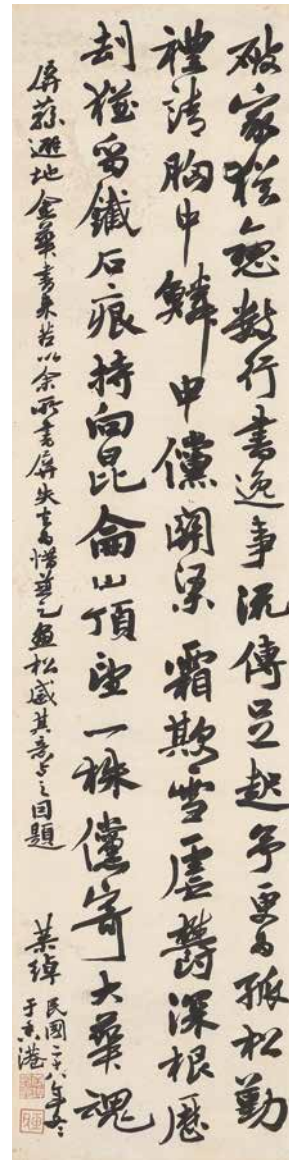 破家猶數行書逸事流傳足起予更為孤松勤
禮請胸中鱗甲儻關渠霜欺雪虐鬱深根歷
劫猶留鐵石痕持向昆侖山頂望一株儻寄大華魂
屏蓀避地金華書來苦以余所書屏失去為惜並乞畫松感其意與之因題
葉綽
民國二十八年冬
于香港